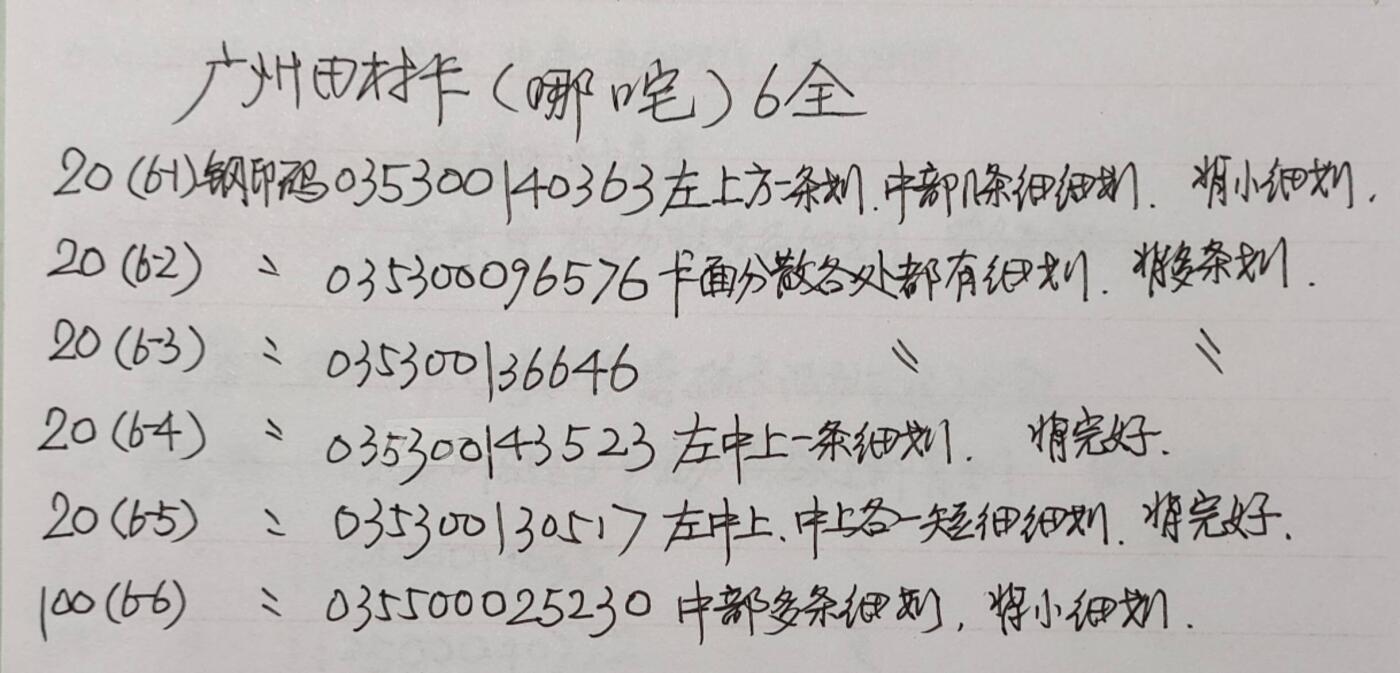 广州田村卡(哪咤)6全
20(6-1)钢印码035300140363左上方一条划.中部几条细细划. 背小细划.
20(6-2) 〃 035300096576卡面分散各处都有细划. 背多条划.
20(6-3) 〃 035300136646 〃 〃
20(6-4) 〃 035300143523左中上一条细划. 背完好.
20(6-5) 〃 035300130517左中上、中上各一短细细划. 背完好.
100(6-6) 〃 035500025230中部多条细划, 背小细划.